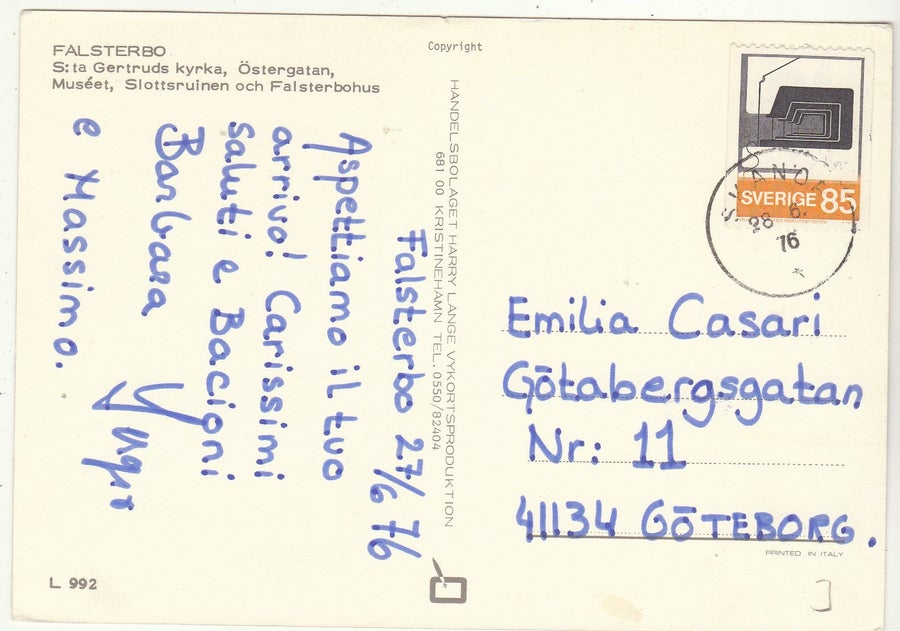 FALSTERBO
S:ta Gertruds kyrka, Östergatan,
Muséet, Slottsruinen och Falsterbohus
Copyright
Falsterbo 27/6 76
Aspettiamo il tuo
arrivo! Carissimi
saluti e Bacioni
Barbara
e Massimo.
HANDELSBOLAGET HARRY LANGE VYKORTSPRODUKTION
681 00 KRISTINEHAMN TEL. 0550/82404
SVERIGE 85
28 6.
76
Emilia Casari
Götabergsgatan
Nr: 11
41134 GÖTEBORG.
PRINTED IN ITALY
L 992